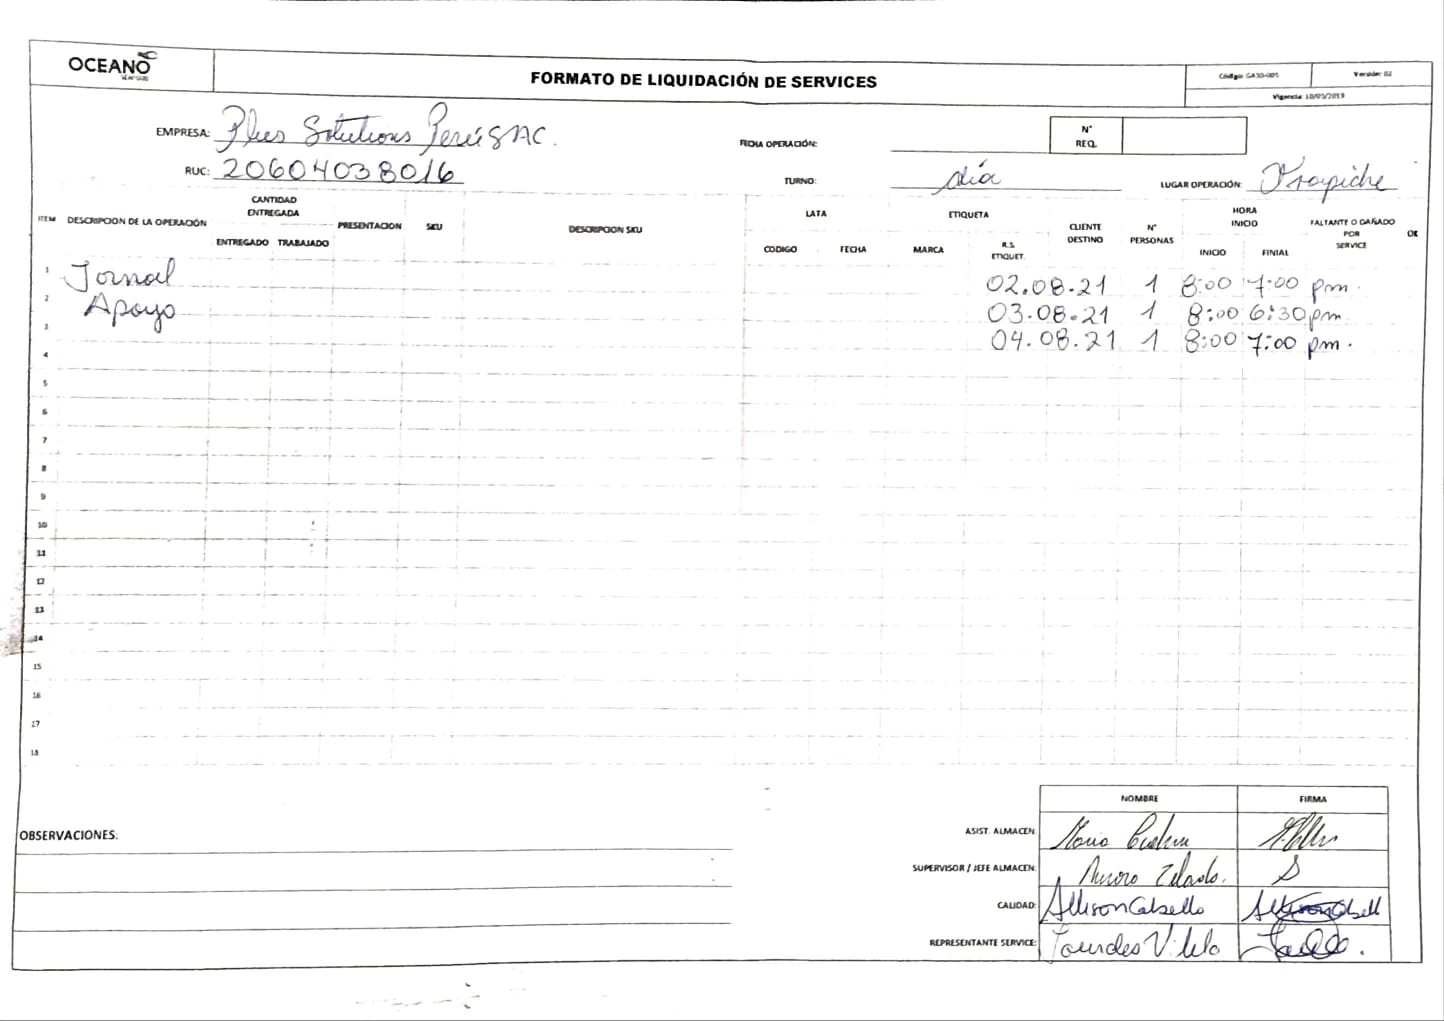 OCEANO
SEAFOOD
FORMATO DE LIQUIDACIÓN DE SERVICES
Código: GASO-005
Versión: 02
Vigencia: 10/05/2019
EMPRESA: Plus Solutions Perú SAC.
FECHA OPERACIÓN:
N° REQ.
RUC: 20604038016
TURNO: día
LUGAR OPERACIÓN: Trapiche
ITEM
DESCRIPCION DE LA OPERACIÓN
CANTIDAD ENTREGADA
ENTREGADO
TRABAJADO
PRESENTACION
SKU
DESCRIPCION SKU
LATA
CODIGO
FECHA
ETIQUETA
MARCA
R.S. ETIQUET.
CLIENTE DESTINO
N° PERSONAS
HORA INICIO
INICIO
FINIAL
FALTANTE O DAÑADO POR SERVICE
1 Jornal 02.08.21 1 8:00 7:00 pm.
2 Apoyo 03.08.21 1 8:00 6:30 pm.
3 04.08.21 1 8:00 7:00 pm.
4
5
6
7
8
9
10
11
12
13
14
15
16
17
18
NOMBRE
FIRMA
OBSERVACIONES:
ASIST. ALMACEN:
SUPERVISOR / JEFE ALMACEN:
CALIDAD: Allison Cabello
REPRESENTANTE SERVICE: Lourdes Vilela